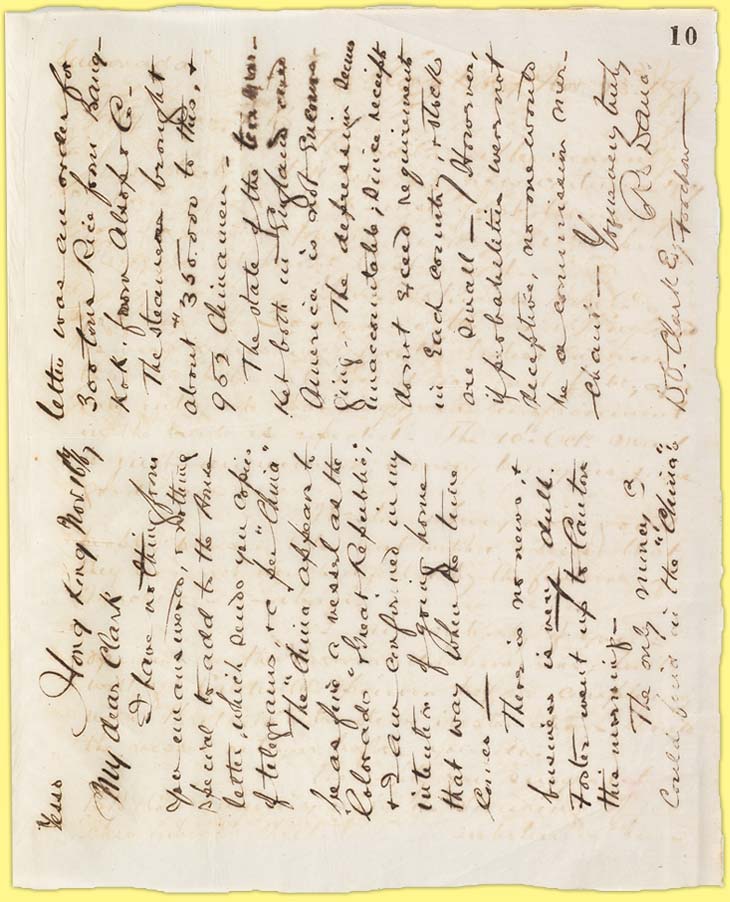 10
Hong Kong Nov. 16/67
My dear Clark
I have nothing from
you unanswered, & nothing
special to add to the
letter, which sends you copies
of telegrams, &c per "China"
The "China" appears to
be as fine a vessel as the
Colorado" & "Great Republic";
& I am confirmed in my
intention of going home
that way when the time
comes —
There is no news, &
business is very dull.
Foster went up to Canton
this morning —
The only
could find in the "China's"
letter was an order for
300 tons Rice from Bang-
kok. from Alsop & Co —
The steamer brought
about " 350.000 to this, &
952 Chinamen —
The state of the tea mar-
ket both in England and
America is not encoura-
ging — The depression seems
unaccountable; since receipts
do not exceed requirements
in each country, & stocks
are small — However,
if probabilities were not
deceptive, no one would
be a commission mer-
chant — Yours very truly
D.O. Clark Esq Foochow —